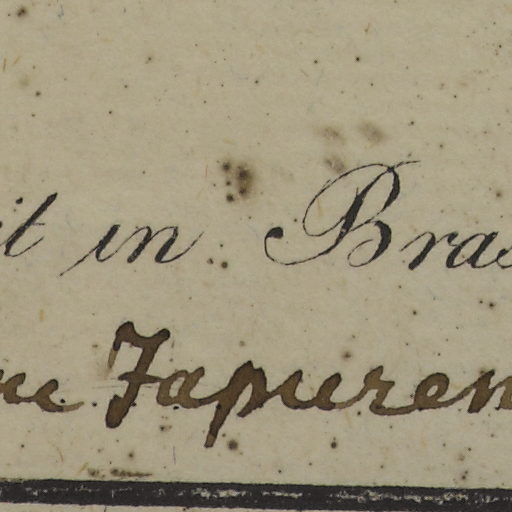 it in Bras
Japuren